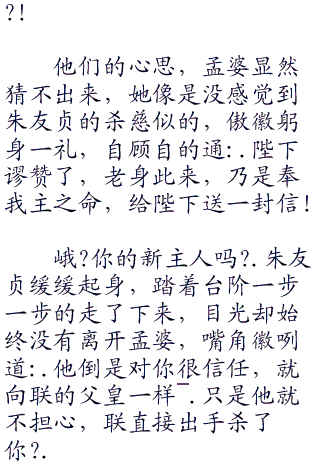 ?!
他们的心思，孟婆显然
猜不出来，她像是没感觉到
朱友贞的杀慈似的，傲徽躬
身一礼，自顾自的通:.陛下
谬赞了，老身此来，乃是奉
我主之命，给陛下送一封信!
峨?你的新主人吗?.朱友
贞缓缓起身，踏着台阶一步
一步的走了下来，目光却始
终没有离开孟婆，嘴角徽咧
道:.他倒是对你很信任，就
向联的父皇一样".只是他就
不担心，联直接出手杀了
你?.